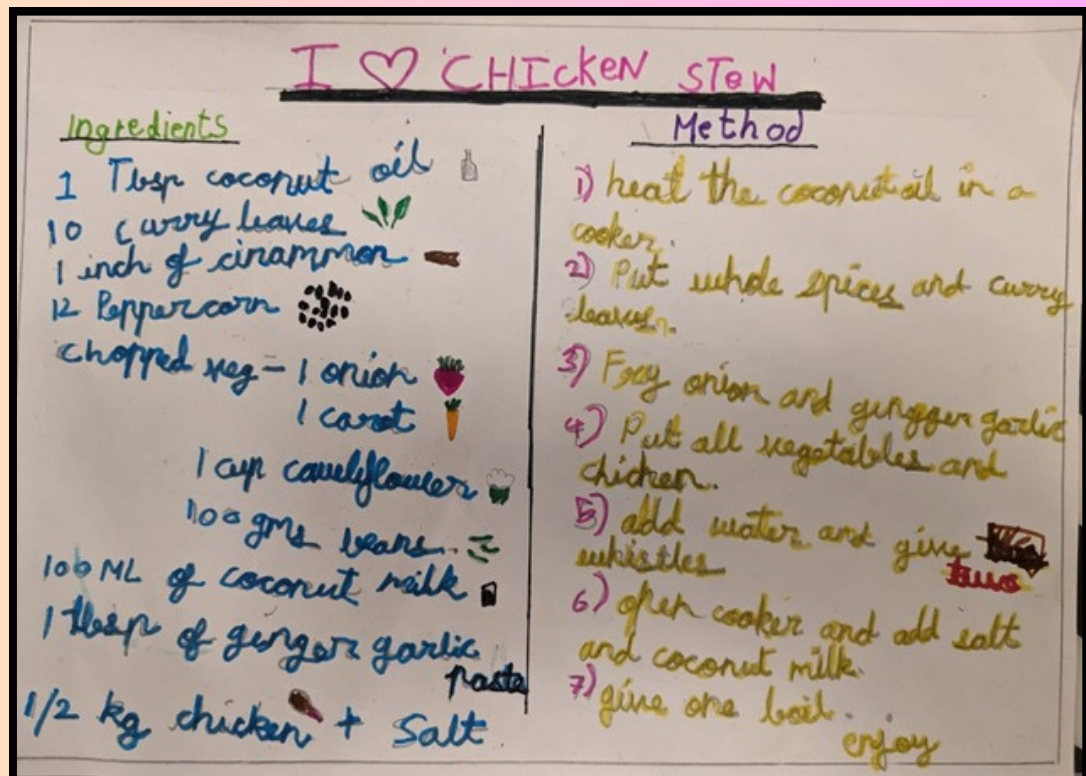 I ♡ CHICKEN STEW
Ingredients
1 Tbsp coconut oil
10 curry leaves
1 inch of cinammon
12 Peppercorn
chopped veg - 1 onion
1 carot
1 cup cauliflower
100 gms beans
100 ML of coconut milk
1 tbsp of ginger garlic
paste
1/2 kg chicken + Salt
Method
1) heat the coconut oil in a
cooker.
2) Put whole spices and curry
leaves.
3) Fry onion and gingger garlic
4) Put all vegetables and
chicken.
5) add water and give
two
whistles
6) open cooker and add salt
and coconut milk.
7) give one boil.
enjoy